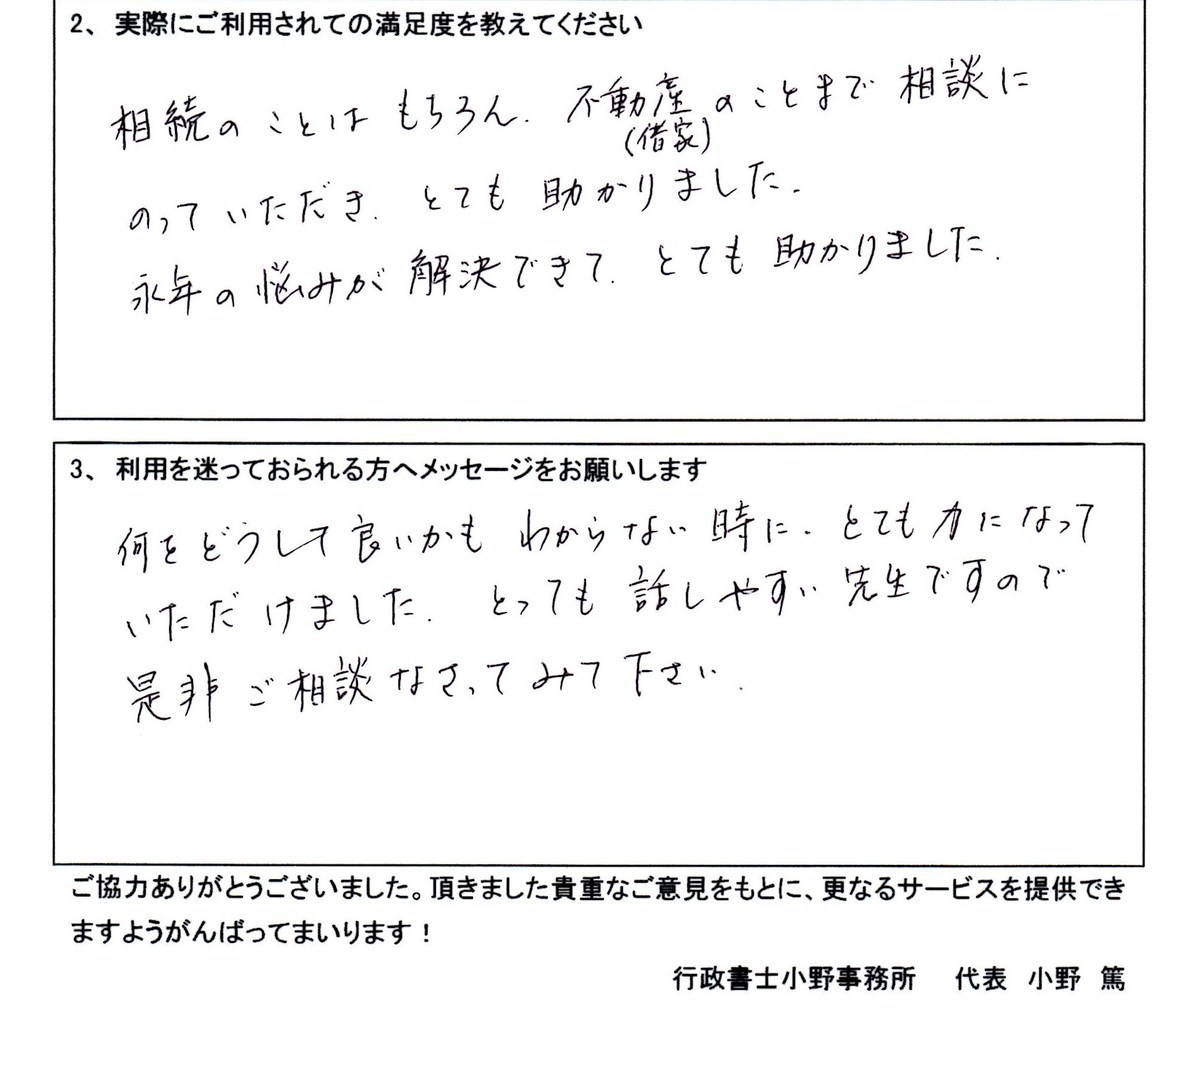 2、実際にご利用されての満足度を教えてください
相続のことはもちろん、不動産のことまで相談に
(借家)
のっていただき、とても助かりました。
永年の悩みが解決できて、とても助かりました。
3、利用を迷っておられる方へメッセージをお願いします
何をどうして良いかもわからない時に、とても力になって
いただけました。とっても話しやすい先生ですので
是非ご相談なさってみて下さい。
ご協力ありがとうございました。頂きました貴重なご意見をもとに、更なるサービスを提供でき
ますようがんばってまいります！
行政書士小野事務所　代表　小野　篤